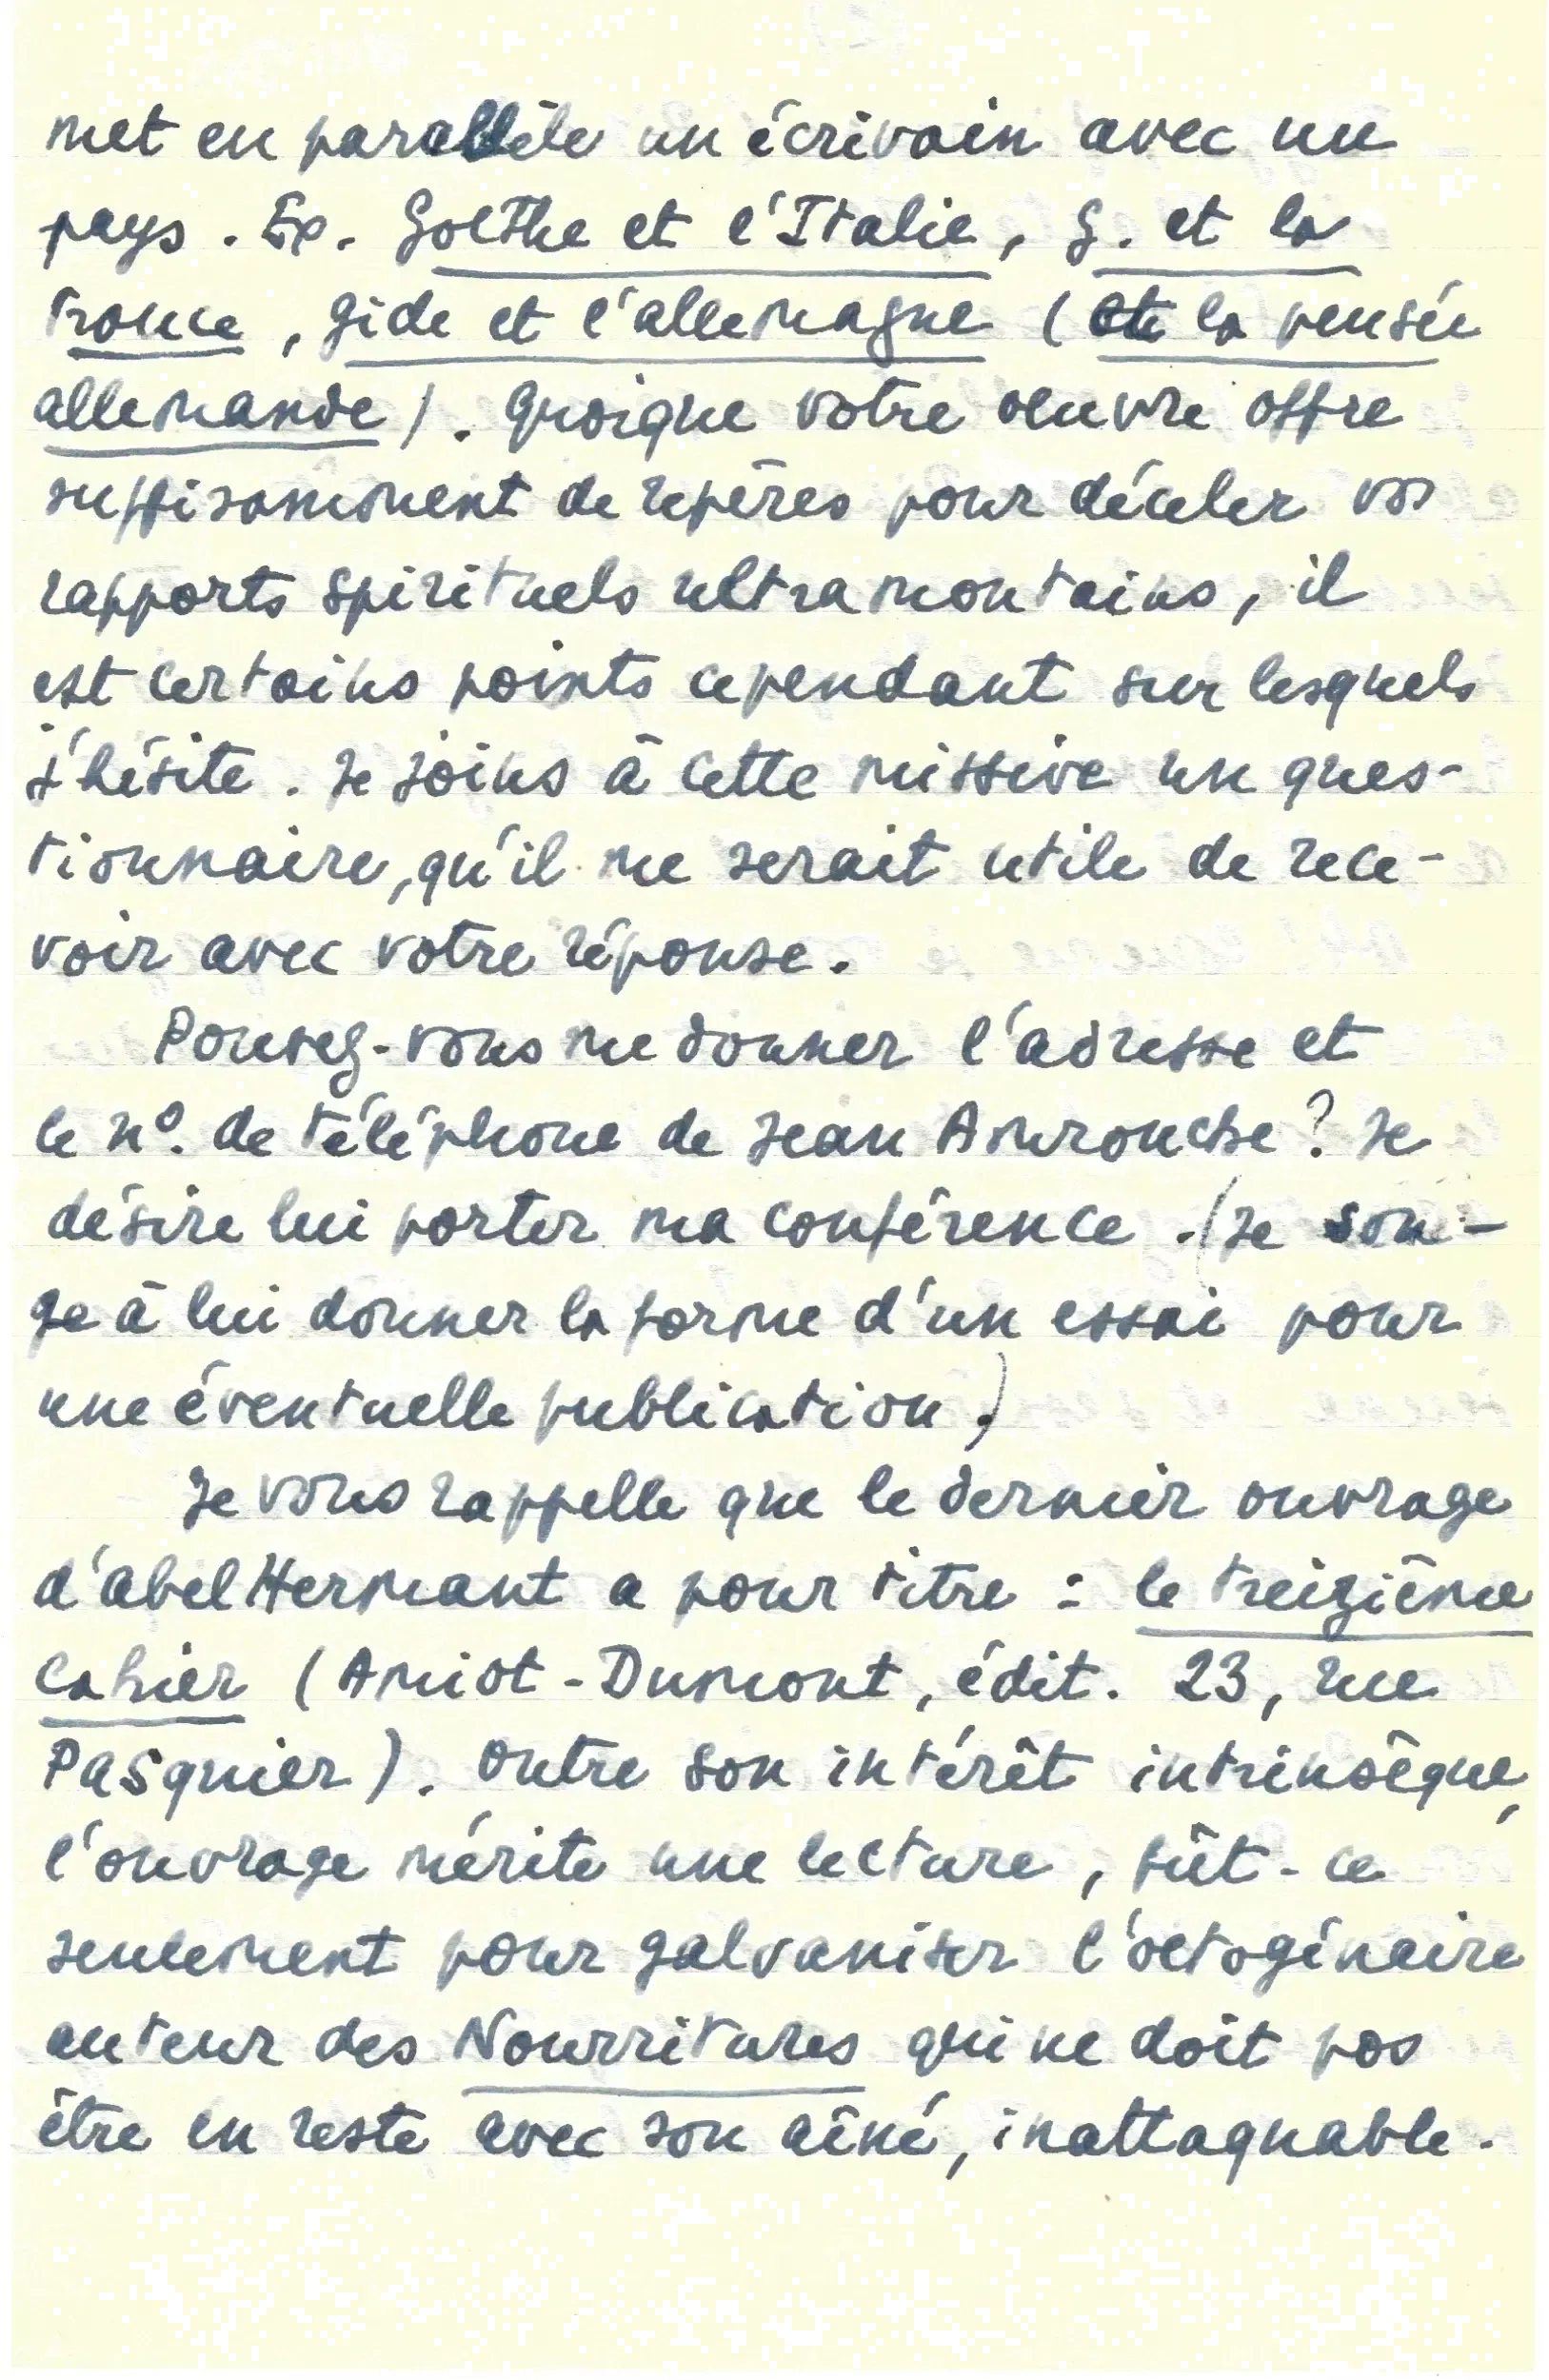 met en parallèle un écrivain avec un
pays. Ex. Goethe et l'Italie, G. et la
France, Gide et l'allemagne (et la pensée
allemande). Quoique votre oeuvre offre
suffisamment de repères pour déceler vos
rapports spirituels ultramontains, il
est certains points cependant sur lesquels
j'hésite. Je joins à cette missive un ques-
tionnaire, qu'il me serait utile de rece-
voir avec votre réponse.
Pouvez-vous me donner l'adresse et
le nº. de téléphone de Jean Amrouche? Je
désire lui porter ma conférence. (Je son-
ge à lui donner la forme d'un essai pour
une éventuelle publication.)
Je vous rappelle que le dernier ouvrage
d'abel Hermant a pour titre : le treizième
cahier (Amiot-Dumont, édit. 23, rue
Pasquier). Outre son intérêt intrinsèque,
l'ouvrage mérite une lecture, fût-ce
seulement pour galvaniser l'octogénaire
auteur des Nourritures qui ne doit pas
être en reste avec son aîné, inattaquable.